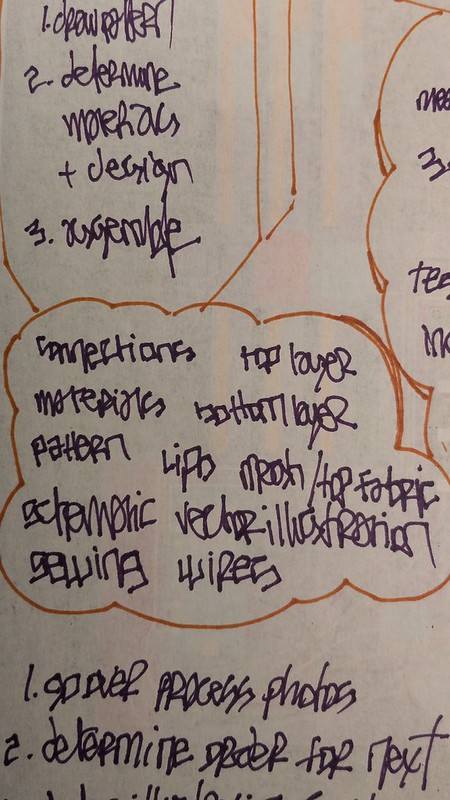 1. draw pattern
2. determine
materials
+ design
3. assemble
connections top layer
materials bottom layer
pattern
Lipo mesh/top fabric
schematic vector illustration
sewing wires
1. go over process photos
2. determine order for next